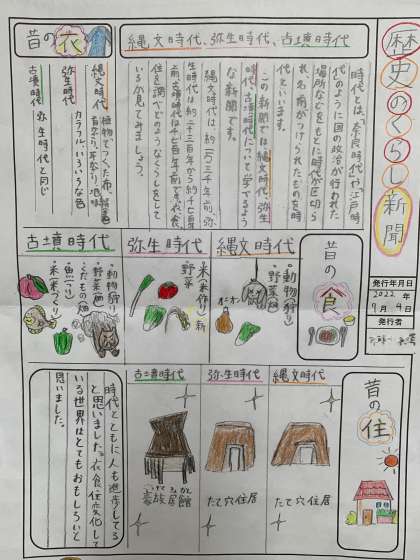 歴史のくらし新聞
発行年月日
2022年
9月4日
発行者
縄文時代、弥生時代、古墳時代
時代とは、「奈良時代」や「江戸時
代」のように国の政治が行われた
場所などをもとに時代が区切ら
れ、名前がつけられたものを時
代といいます。
この新聞では、縄文時代、弥生
時代、古墳時代について学べるよう
な新聞です。
縄文時代は、約一万三千年前、弥
生時代は約二千三百年から約千七百年
前、古墳時代は千七百年前です。衣、食、
住を調べどのようなくらしをして
いるか見てみましょう。
昔の衣
縄文時代
弥生時代
カラフル、いろいろな色
古墳時代
弥生時代と同じ
昔の食
縄文時代
・動物(狩り)
・野菜(畑)
弥生時代
・米(米作り)
新
・野菜
古墳時代
・動物(狩り)
・野菜(畑)
・くだもの(畑)
・魚(つり)
・米(米づくり)
昔の住
縄文時代
たて穴住居
弥生時代
たて穴住居
古墳時代
豪族居館
時代とともに人も進歩してる
と思いました。衣食住変化して
いる世界はとてもおもしろいと
思いました。